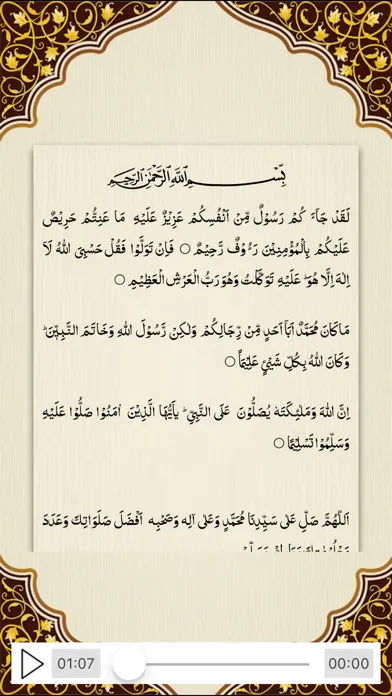 بِسْمِ اللَّهِ الرَّحْمَٰنِ الرَّحِيمِ
لَقَدْ جَآءَ كُمْ رَسُوْلٌ مِّنْ اَنْفُسِكُمْ عَزِيْزٌ عَلَيْهِ مَا عَنِتُّمْ حَرِيْصٌ
عَلَيْكُمْ بِالْمُؤْمِنِيْنَ رَءُوْفٌ رَّحِيْمٌ ○ فَاِنْ تَوَلَّوْا فَقُلْ حَسْبِىَ اللهُ لَآ
اِلٰهَ اِلَّا هُوَ ؕ عَلَيْهِ تَوَكَّلْتُ وَهُوَ رَبُّ الْعَرْشِ الْعَظِيْمِ ○
مَا كَانَ مُحَمَّدٌ اَبَآ اَحَدٍ مِّنْ رِّجَالِكُمْ وَلٰكِنْ رَّسُوْلَ اللهِ وَخَاتَمَ النَّبِيّٖنَ ؕ
وَكَانَ اللهُ بِكُلِّ شَيْئٍ عَلِيْمًا ○
اِنَّ اللهَ وَمَلٰٓئِكَتَهٗ يُصَلُّوْنَ عَلَى النَّبِيِّ ؕ يٰٓاَيُّهَا الَّذِيْنَ اٰمَنُوْا صَلُّوْا عَلَيْهِ
وَسَلِّمُوْا تَسْلِيْمًا ○
اَللّٰهُمَّ صَلِّ عَلٰى سَيِّدِنَا مُحَمَّدٍ وَعَلٰى اٰلِهٖ وَصَحْبِهٖ اَفْضَلَ صَلَوَاتِكَ وَعَدَدَ
01:07 00:00